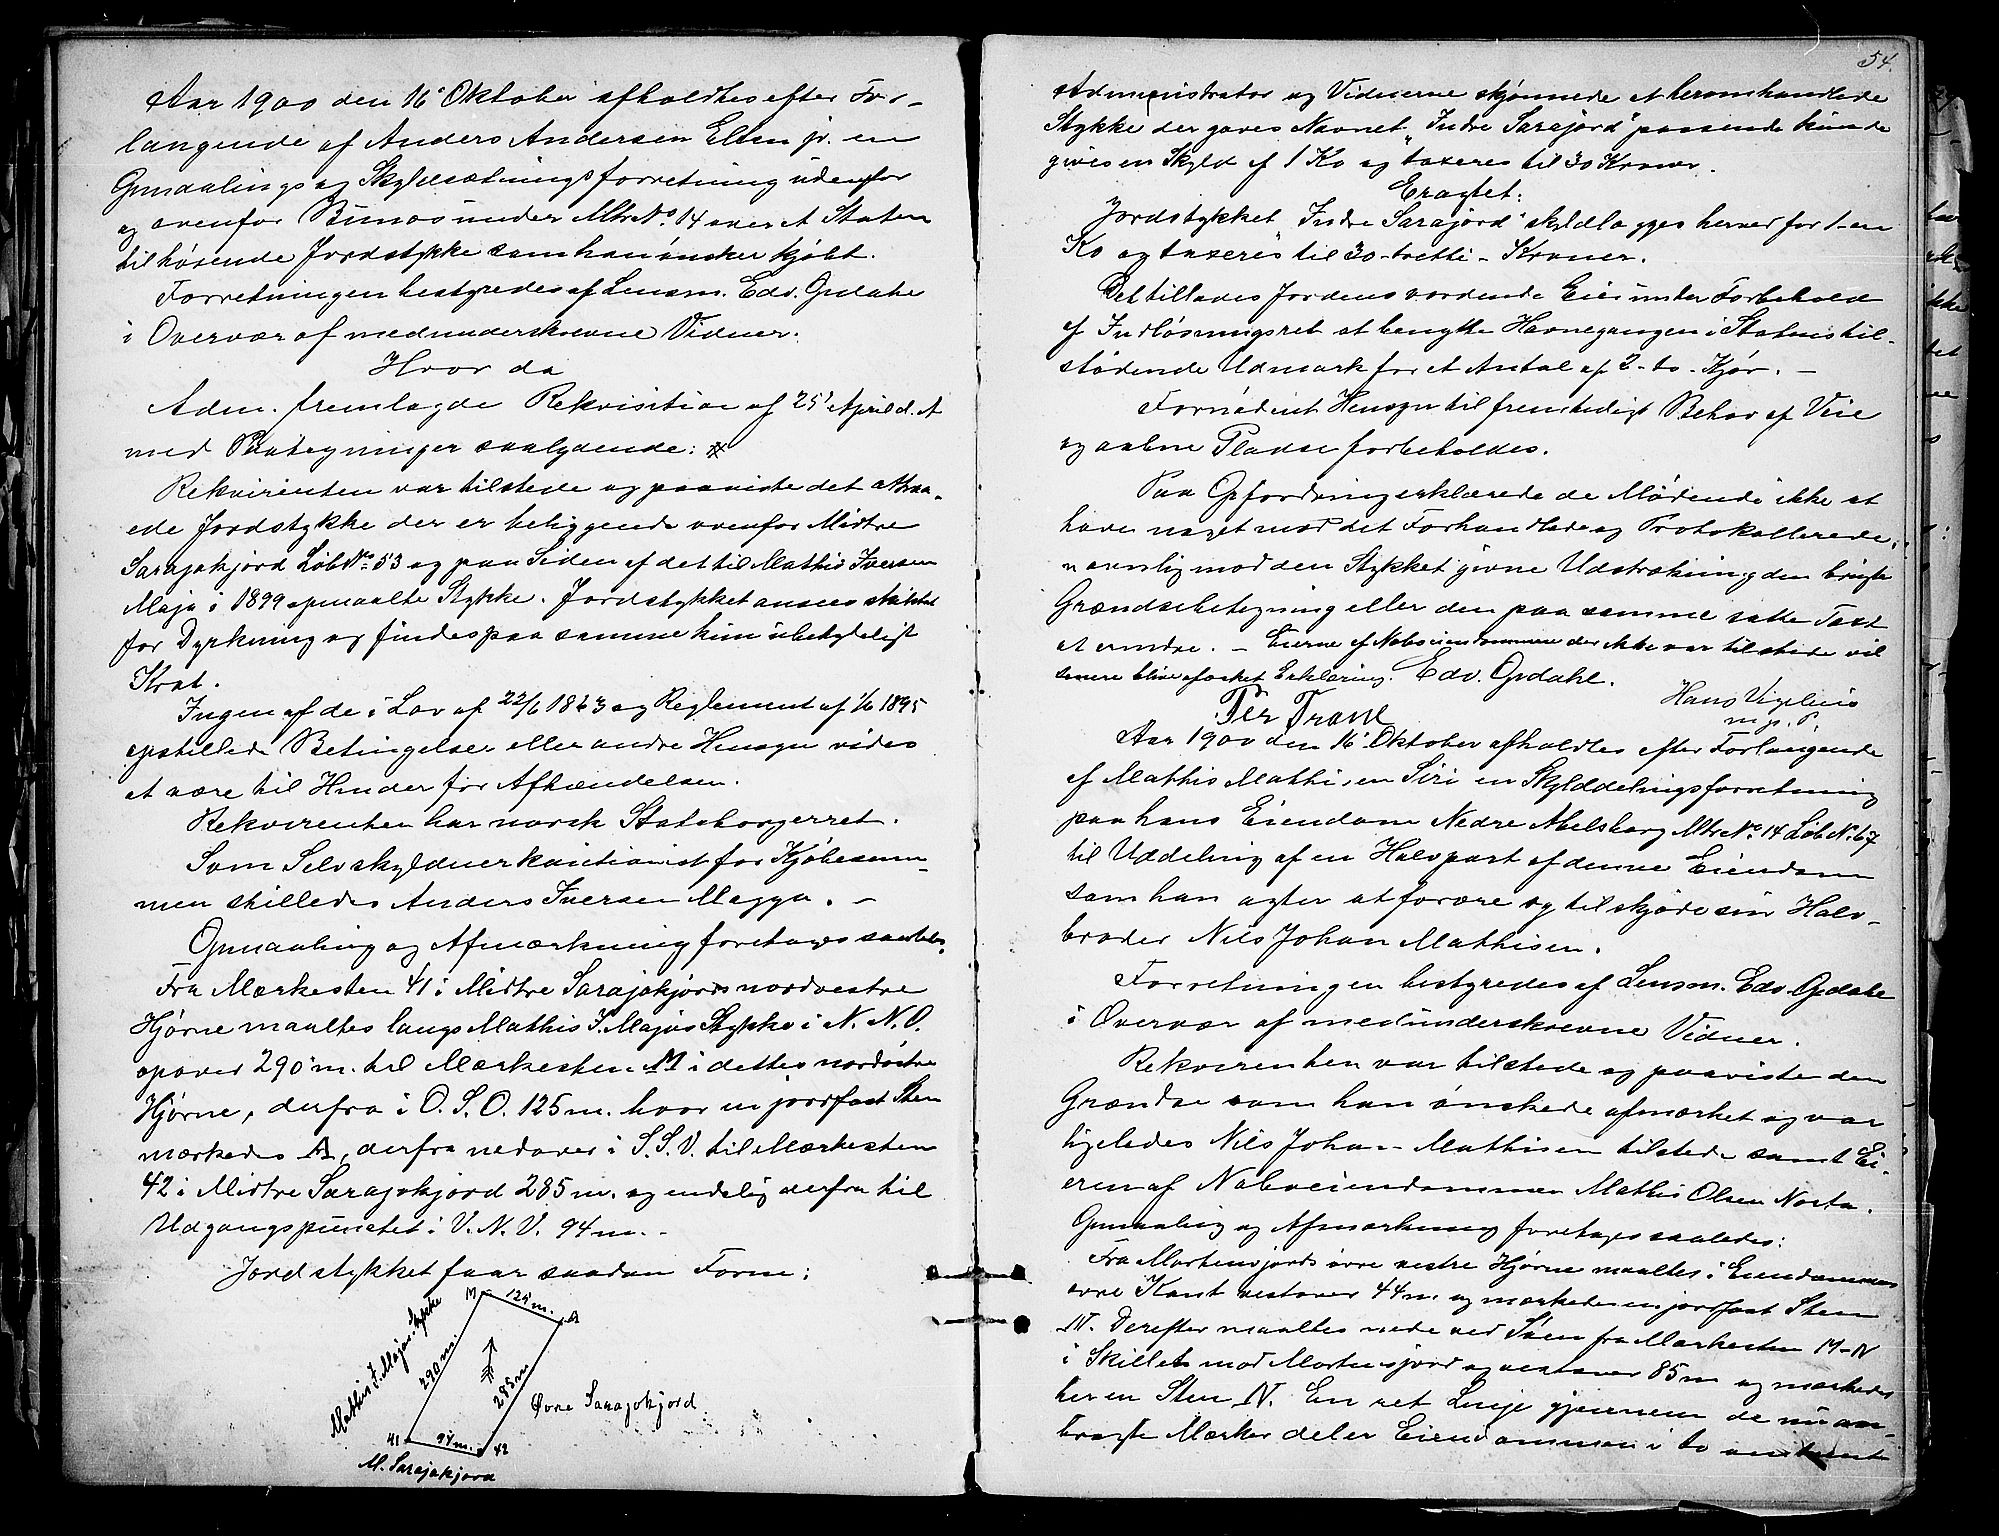 Aar 1900 den 16' Oktober afholdtes efter For-
langende af Anders Andersen Ellen jr. en
Opmaalings og Skyldsætningsforretning udenfor
og ovenfor Bunos under Mtr No. 14 over et Staten
tilhørende Jordstykke som han ønsker kjøbt.
Forretningen bestyredes af Lensm. Edv. Opdahl
i Overvær af medunderskrevne Vidner.
Hvor da
Adm. fremlagde Rekvisition af 25' April d. A
med Paategninger saalydende:
Rekvirenten var tilstede og paaviste det attraa-
ede Jordstykke der er beliggende ovenfor Midtre
Sarajokjord Løb No. 53 og paa Siden af det til Mathis Iversen
Maja i 1899 opmaalte Stykke. Jordstykket ansees skikket
for Dyrkning og findes paa samme kun ubetydeligt
Krat.
Ingen af de i Lov af 22/6 1863 og Reglement af 1/6 1895
opstillede Betingelser eller andre Hensyn vides
at være til Hinder for Afhændelsen.
Rekvirenten har norsk Statsborgerret.
Som Selvskyldnerkautionist for Kjøbesum-
men stilledes Anders Iversen Magga. -
Opmaaling og Afmærkning foretages saaledes:
Fra Mærkesten 41 i Midtre Sarajokjords nordvestre
Hjørne maaltes langs Mathis I. Majas Stykke i N. N. O.
opover 290 m. til Mærkesten M i dettes nordøstre
Hjørne, derfra i O. S. O. 125 m. hvor en jordfast Sten
mærkedes A, derfra nedover i S. S. V. til Mærkesten
42 i Midtre Sarajokjord 285 m. og endelig derfra til
Udgangspunctet i V. N. V. 94 m. -
Jordstykket faar saadan Form:
M 125 m. A
Mathis I. Majas Stykke
290 m.
285 m
Øvre Sarajokjord
41 94 m. 42
M. Sarajokjord
54.
Administrator og Vidnerne skjønnede at heromhandlede
Stykke der gaves Navnet "Indre Sarajord" passende kunde
gives en Skyld af 1 Ko og taxeres til 30 Kroner.
Eragtet:
Jordstykket "Indre Sarajord" skyldlægges herved for 1-en
Ko og taxeres til 30-tretti- Kroner.
Det tillades Jordens vordende Eier under Forbehold
af Indløsningsret at benytte Havnegangen i Statens til-
stødende Udmark for et Antal af 2-to-Kjør. -
Fornødent Hensyn til fremtidigt Behov af Veie
og aabne Pladse forbeholdes.
Paa Opfordring erklærede de Mødende ikke at
have noget mod det Forhandlede og Protokollerede,
navnlig mod den Stykket givne Udstrækning, den brugte
Grændsebetegning eller den paa samme satte Taxt
at erindre. - Eierne af Naboeiendommene der ikke var tilstede vil
senere blive afæsket Erklæring. Edv. Opdahl.
Per Trane
Hans Vigelius
m. p. P.
Aar 1900 den 16' Oktober afholdtes efter Forlangende
af Mathis Mathisen Siri en Skylddelingsforretning
paa hans Eiendom Nedre Abelsborg Mtr No. 14 Løb No. 67
til Uddeling af en Halvpart af denne Eiendom
som han agter at forære og tilskjøde sin Halv-
broder Nils Johan Mathisen.
Forretningen bestyredes af Lensm. Edv. Opdahl
i Overvær af medunderskrevne Vidner.
Rekvirenten var tilstede og paaviste den
Grændse som han ønskede afmærket og var
ligeledes Nils Johan Mathisen tilstede samt Ei-
eren af Naboeiendommen Mathis Olsen Nosta.
Opmaaling og Afmærkning foretages saaledes:
Fra Mortensjords øvre vestre Hjørne maaltes i Eiendommens
øvre Kant vestover 44 m og mærkedes en jordfast Sten
N. Derefter maaltes nede ved Søen fra Mærkesten M-N
i Skillet mod Mortensjord og vestover 85 m og mærkedes
her en Sten N. En ret Linje gjennem de nu an-
bragte Mærker deler Eiendommen i to